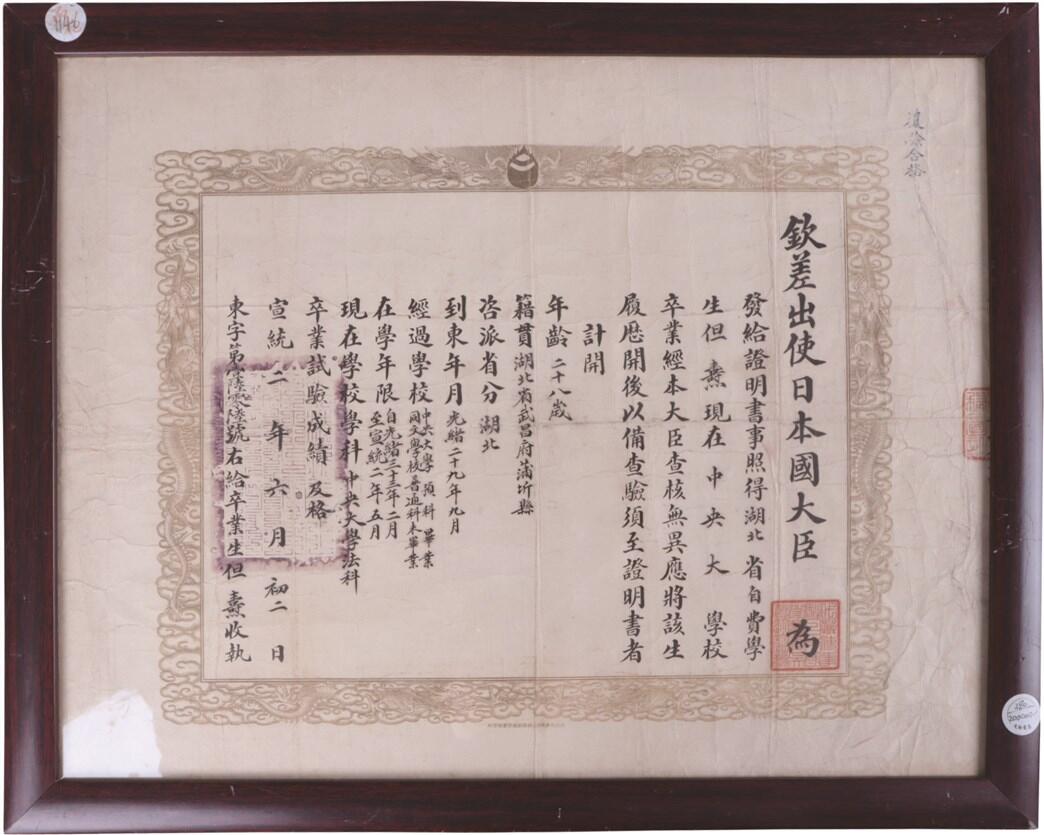 欽差出使日本國大臣 為
發給證明書事照得湖北 省自費學
生但燾現在中央大 學校
卒業經本大臣查核無異應將該生
履歷開後以備查驗須至證明書者
計開
年齡 二十八歲
籍貫 湖北省武昌府蒲圻縣
咨派省分 湖北
到東年月 光緒二十九年九月
經過學校 中央大學預科畢業
同文學校普通科未畢業
在學年限 自光緒三十三年二月
至宣統二年五月
現在學校學科 中央大學法科
卒業試驗成績 及格
宣統二年六月初二日
東字第 陸零陸號右給卒業生但燾收執
復 合格
1146